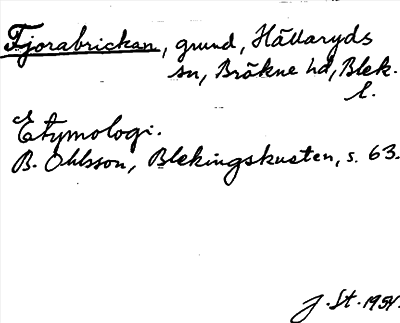 Fjorabrickan, grund, Hällaryds
sn, Bräkne hd, Blek.
l.
Etymologi.
B. Ohlsson, Blekingskusten, s. 63.
J. St. 1954.